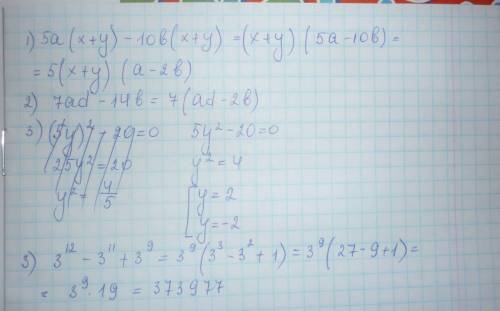 1) 5a(x+y) - 10b(x+y) = (x+y)(5a-10b) =
= 5(x+y)(a-2b)
2) 7ad - 14b = 7(ad-2b)
3) (5y)² - 20=0 5y²-20=0
25y² = 20 y² = 4
y² = 4/5 y = 2
y = -2
3) 3¹² - 3¹¹ + 3⁹ = 3⁹(3³-3²+1) = 3⁹(27-9+1) =
= 3⁹·19 = 373977